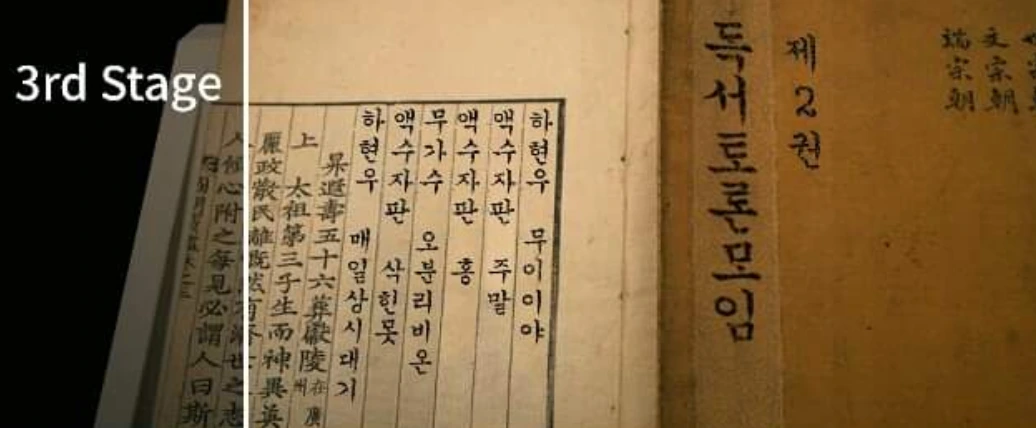 3rd Stage
文宗朝
端宗朝
제2권
독서토론모임
하현우 무이이야
액수자판 주말
액수자판 홍
무가수 오분리비온
액수자판 삭힌못
하현우 매일상시대기
昇遐壽五十六葬獻陵在廣州
上 太祖第三子生而神異英
政散民離
心附之每見必謂人曰斯